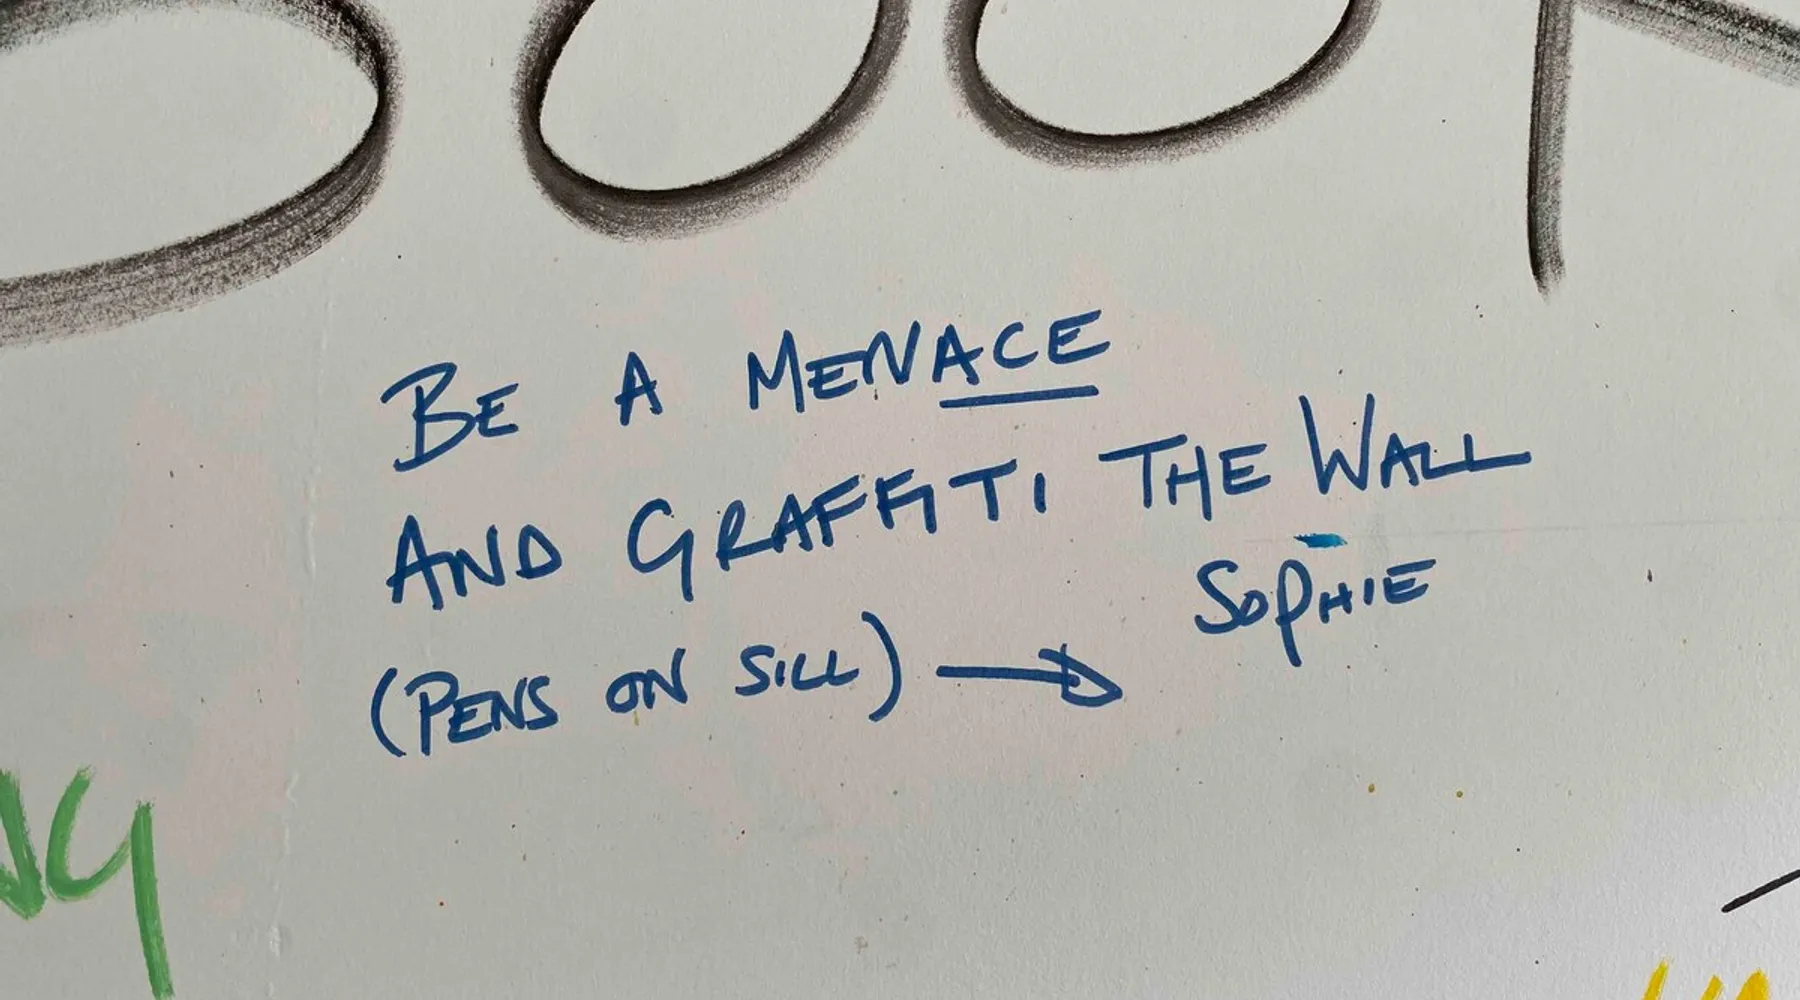 BE A MENACE
AND GRAFFITI THE WALL
SOPHIE
(PENS ON SILL)